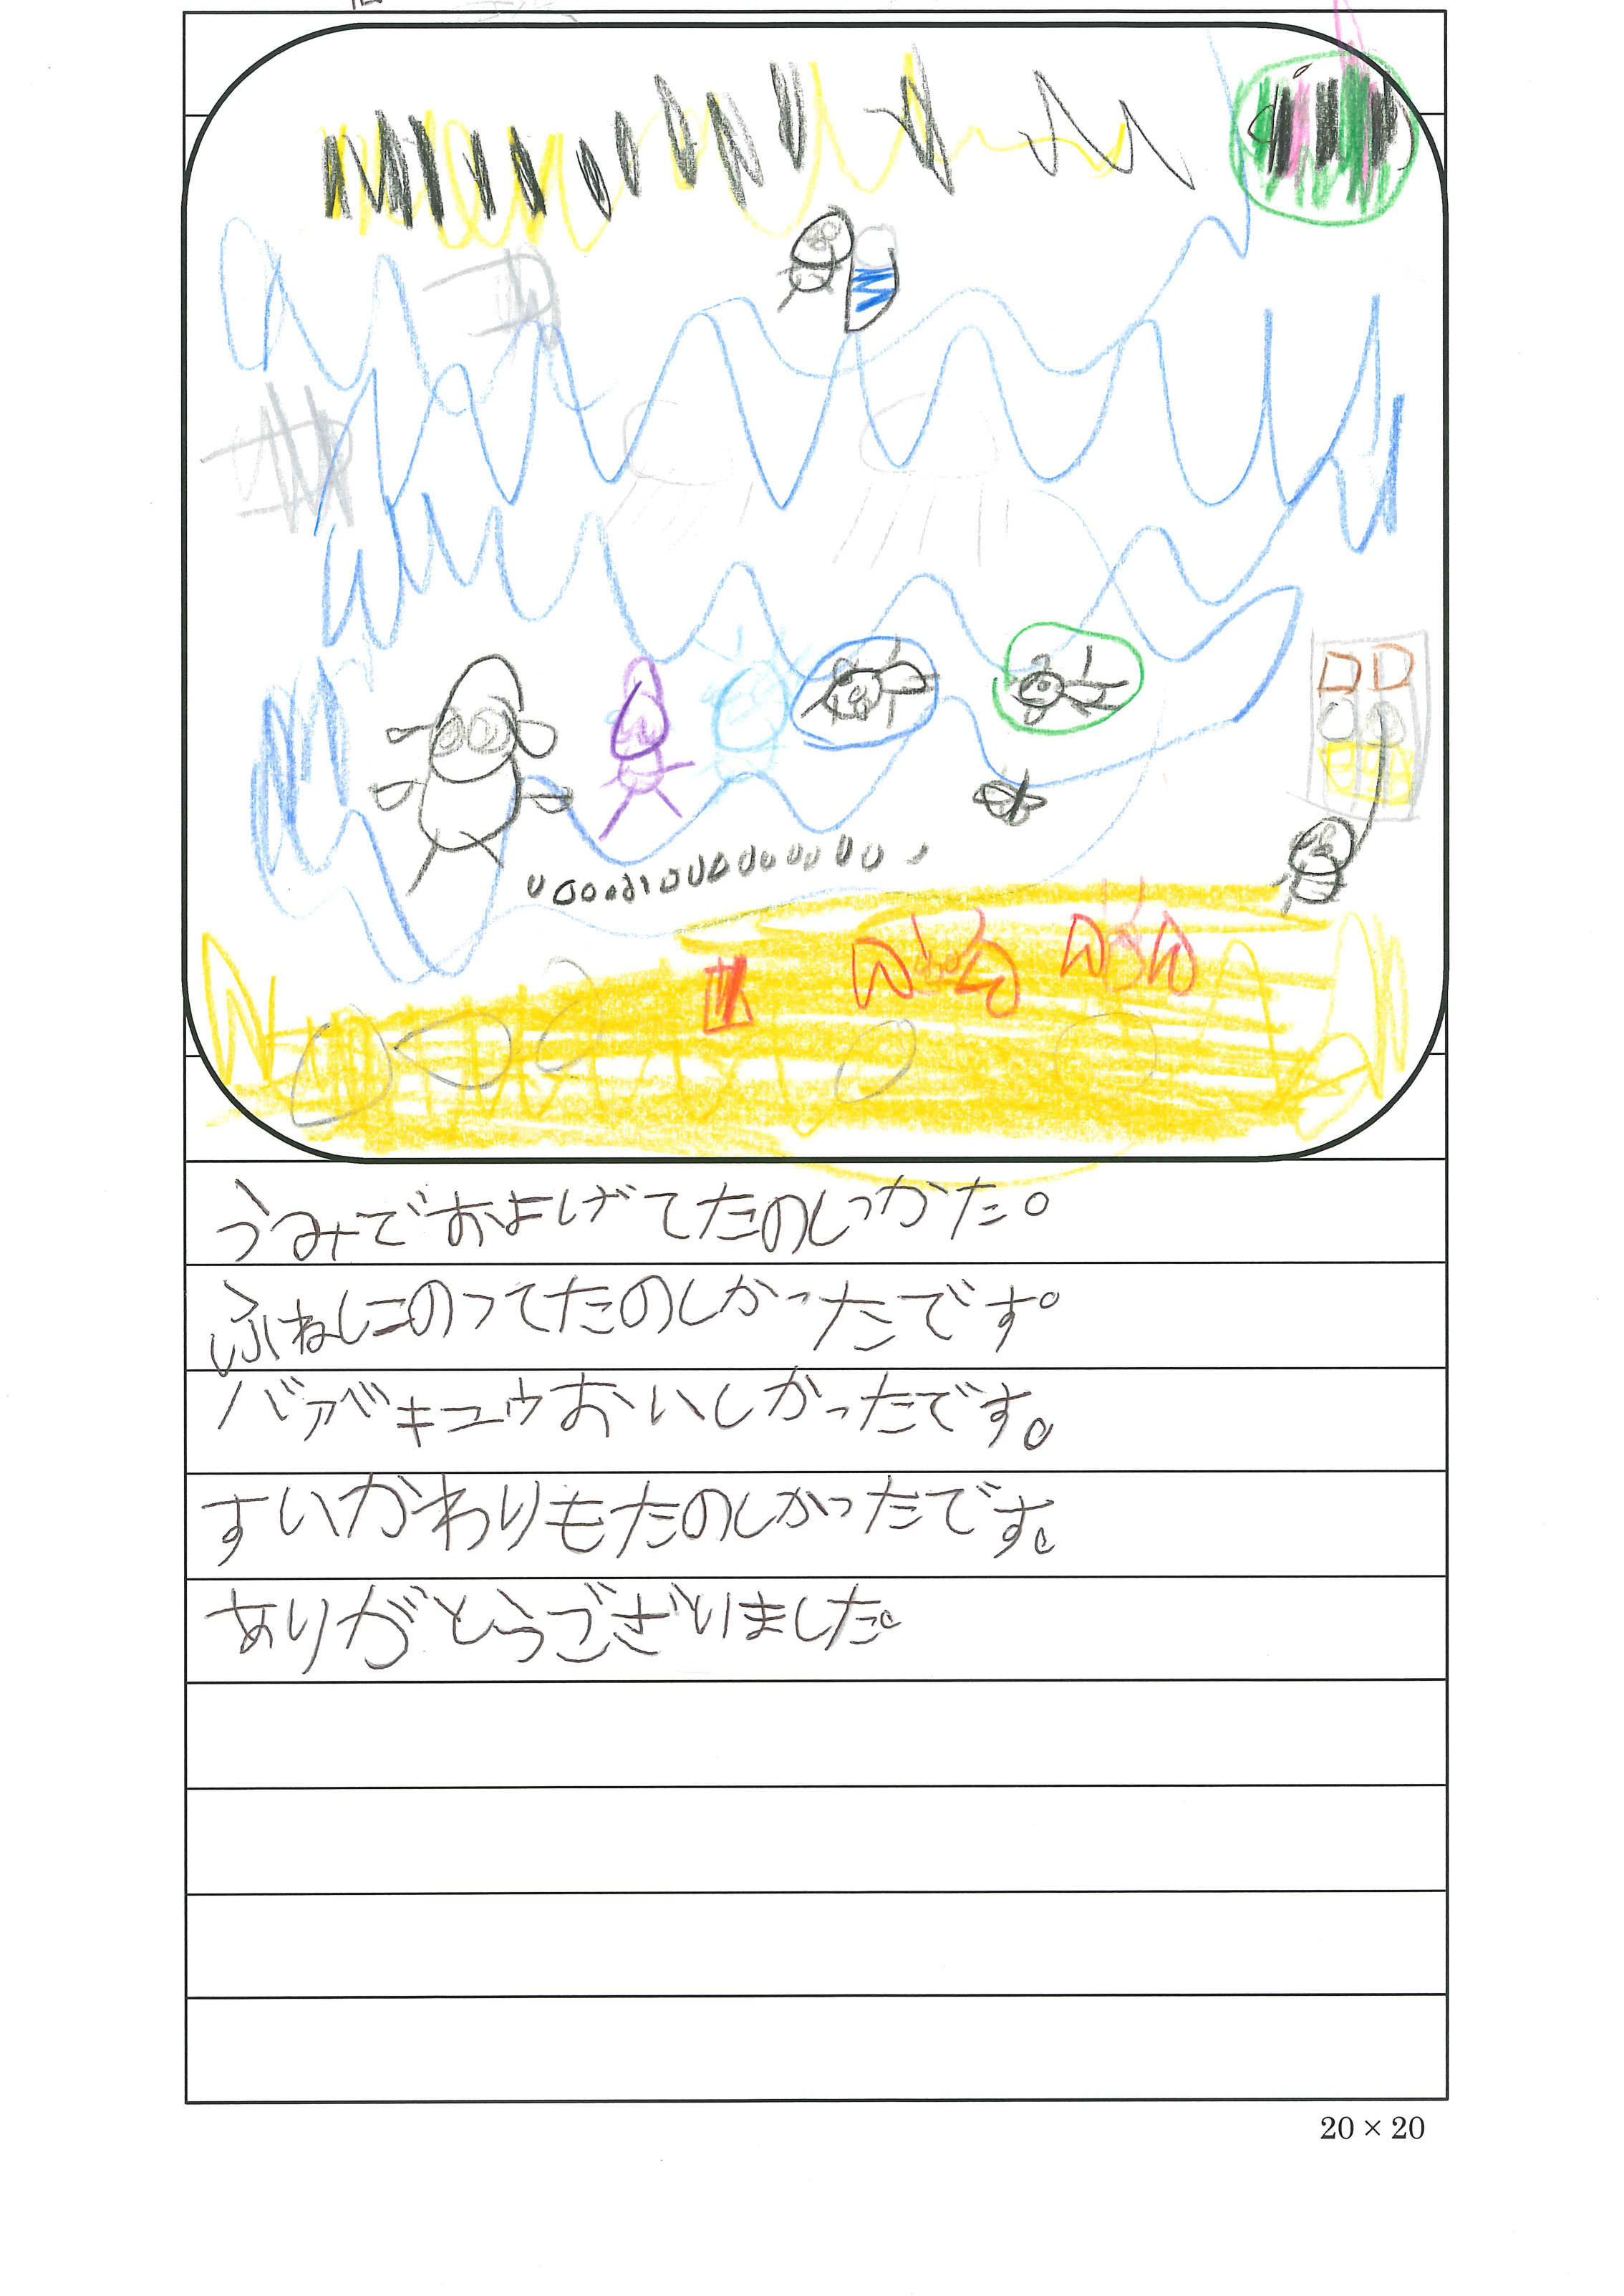 うみでおよげてたのしっかた。
ふねにのってたのしかったです。
バアベキュウおいしかったです。
すいかわりもたのしかったです。
ありがとうございました。
20×20